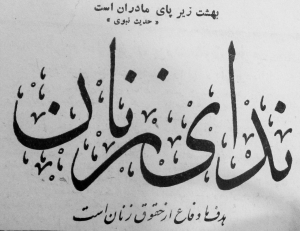 بهشت زیر پای مادران است
« حدیث نبوی »
ندای زنان
هدف ما دفاع از حقوق زنان است